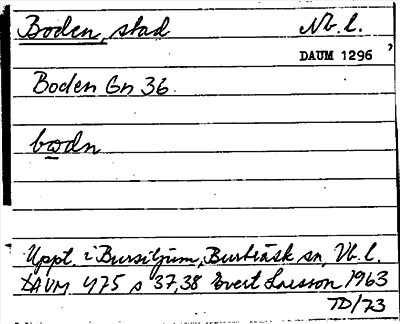 Boden, stad Nb. l.
DAUM 1296
Boden Gn 36.
bodn
Uppt. i Bursiljum, Burträsk sn, Vb. l.
DAUM 475 s 37,38 Evert Larsson 1963
TD/73